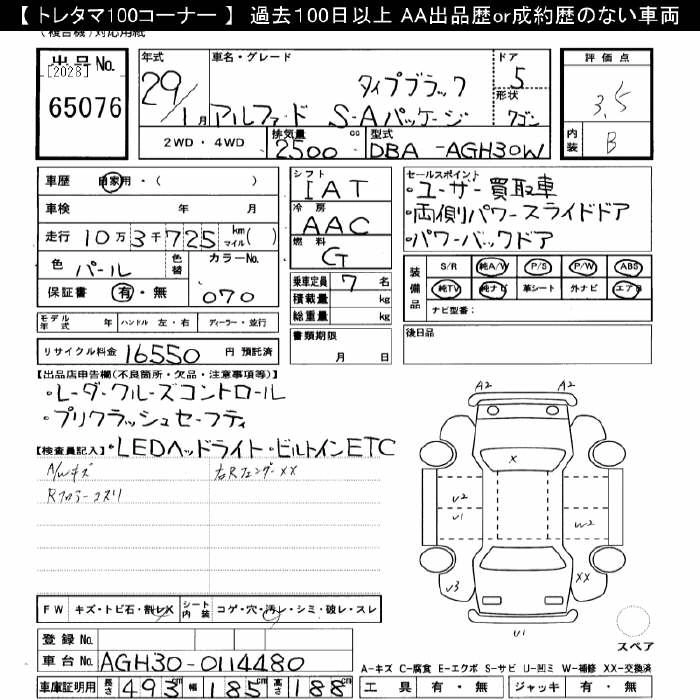 【 トレタマ100コーナー 】 過去100日以上 AA出品歴or成約歴のない車両
(複合機)対応用紙
出品No.
[2028]
65076
年式
29/1月
車名・グレード
タイプブラック
アルファード S-Aパッケージ
ドア
5
形状
ワゴン
評価点
3.5
内装
B
2WD・4WD
排気量
2500 cc
型式
DBA -AGH30W
車歴 自家用・( )
車検 年 月
走行 10万3千725 km マイル( )
色 パール 色替 カラーNo.
保証書 有・無 070
シフト
IAT
冷房
AAC
燃料
G
乗車定員 7 名
積載量 kg
総重量 kg
書類期限
月 日
セールスポイント
・ユーザー買取車
・両側パワースライドドア
・パワーバックドア
装備品
S/R 純A/W P/S P/W ABS
純TV 純ナビ 革シート 外ナビ エアB
ナビ型番:
後日品
モデル年式 年 ハンドル 左・右 ディーラー・並行
リサイクル料金 16550 円 預託済
【出品店申告欄(不良箇所・欠品・注意事項等)】
・レーダークルーズコントロール
・プリクラッシュセーフティ
【検査員記入】・LEDヘッドライト・ビルトインETC
A/Wキズ 右Rフェンダーxx
Rフロアーコスリ
A2 A2
X
U2
U1
W2
U3
XX
U1
スペア
FW キズ・トビ石・割レX シート内装 コゲ・穴・汚レ・シミ・破レ・スレ
登録No.
車台No. AGH30-0114480
車庫証明用 長さ 493cm 幅 185cm 高さ 188cm
A-キズ C-腐食 E-エクボ S-サビ U-凹ミ W-補修 XX-交換済
工具 有・無 ジャッキ 有・無